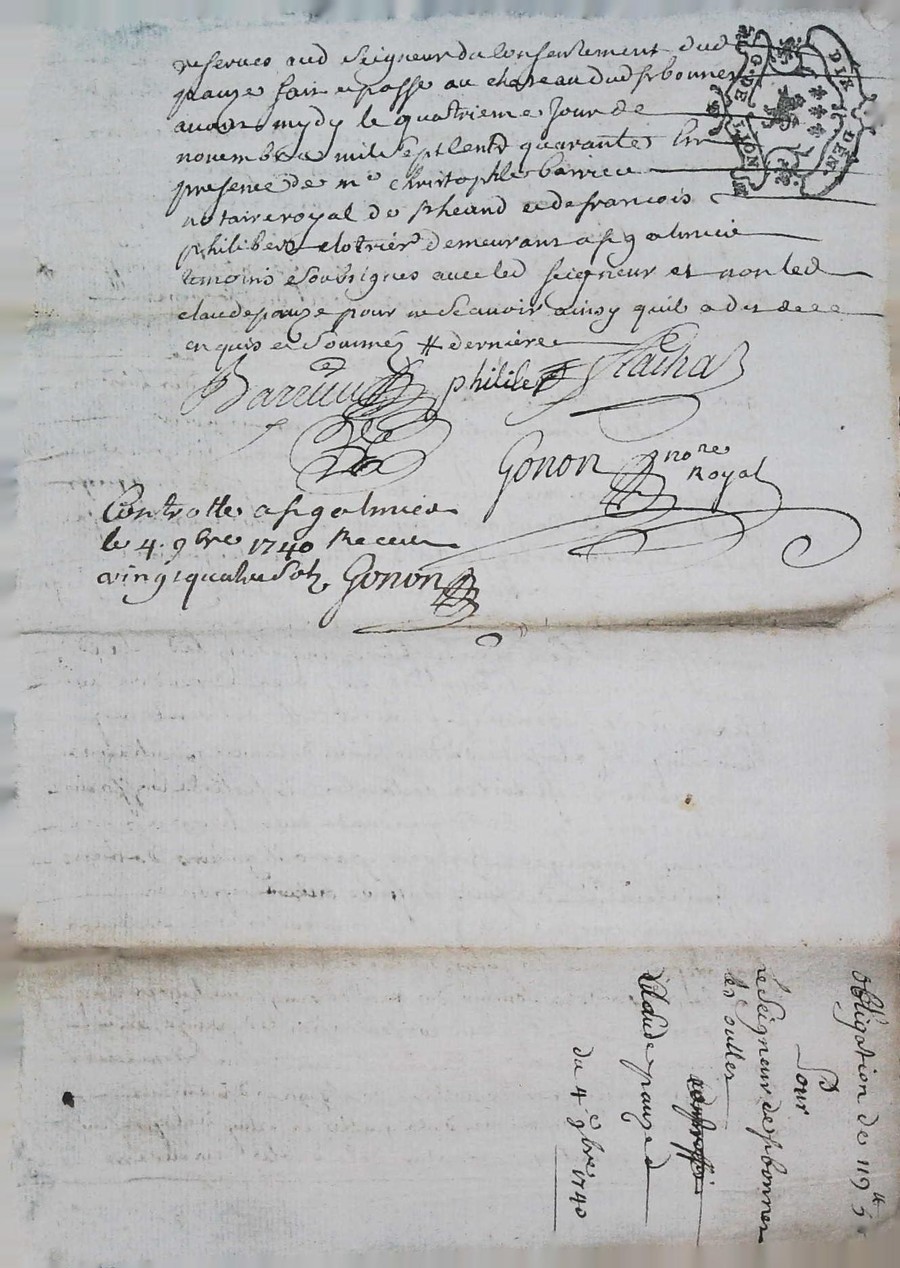 reserves aud Seigneur du Consentement dud
pauze fait et passé au chateau dud st bonnet
avant mydy le quatrieme Jour de
novembre mil sept Cents quarante En
presence de me christophle barrieu
notaire royal de st heand et de francois
philibert clotrier demeurant a st galmier
temoins Soubsignes avec led seigneur et non led
claude pauze pour ne Scavoir ainsy quil a dit de ce
enquis et Sommé # derniere
Barrieu philibert Flachat
Gonon nore
Royal
Controllé a st galmier
le 4. 9bre 1740 Receu
vingt quatre Solz Gonon
G. DE LYON
DIX DEN.
obligation de 119 lt
Pour
le Seigneur de st bonnet
les oulles
Claude pauze
du 4 9bre 1740